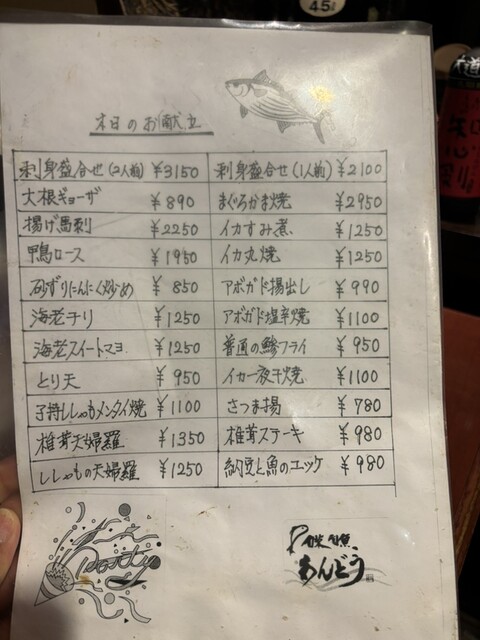 45ℓ
本日のお献立
刺身盛合せ(2人前) ¥3150 刺身盛合せ(1人前) ¥2100
大根ギョーザ ¥890 まぐろかま焼 ¥2950
揚げ馬刺 ¥2250 イカすみ煮 ¥1250
鴨ロース ¥1950 イカ丸焼 ¥1250
砂ずりにんにく炒め ¥850 アボガド揚出し ¥990
海老チリ ¥1250 アボガド塩辛焼 ¥1100
海老スイートマヨ ¥1250 普通の鯵フライ ¥950
とり天 ¥950 イカ一夜干焼 ¥1100
子持ししゃもメンタイ焼 ¥1100 さつま揚 ¥780
椎茸天婦羅 ¥1350 椎茸ステーキ ¥980
ししゃもの天婦羅 ¥1250 納豆と魚のユッケ ¥980
Party
あんどう